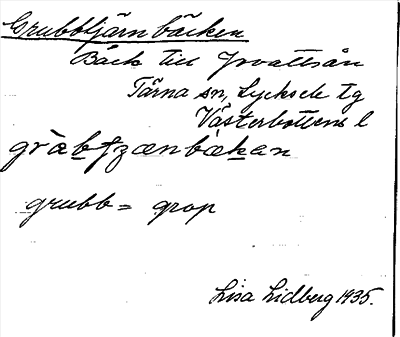 Grubbtjärnbäcken
Bäck till Jovattsån
Tärna sn, Lycksele tg
Västerbottens l
gràbtzænbækan
grubb = grop
Lisa Lidberg 1935.